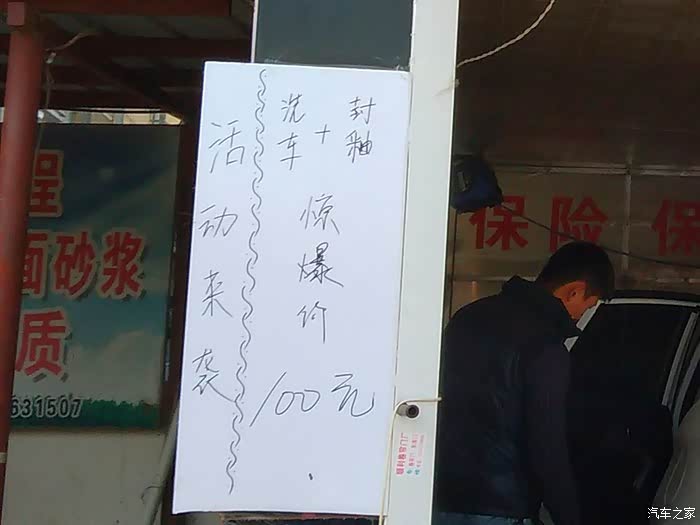 活动来袭
洗车+封釉
惊爆价
100元
程
面砂浆
质
631507
保险 保
顺利卷帘门厂
汽车之家